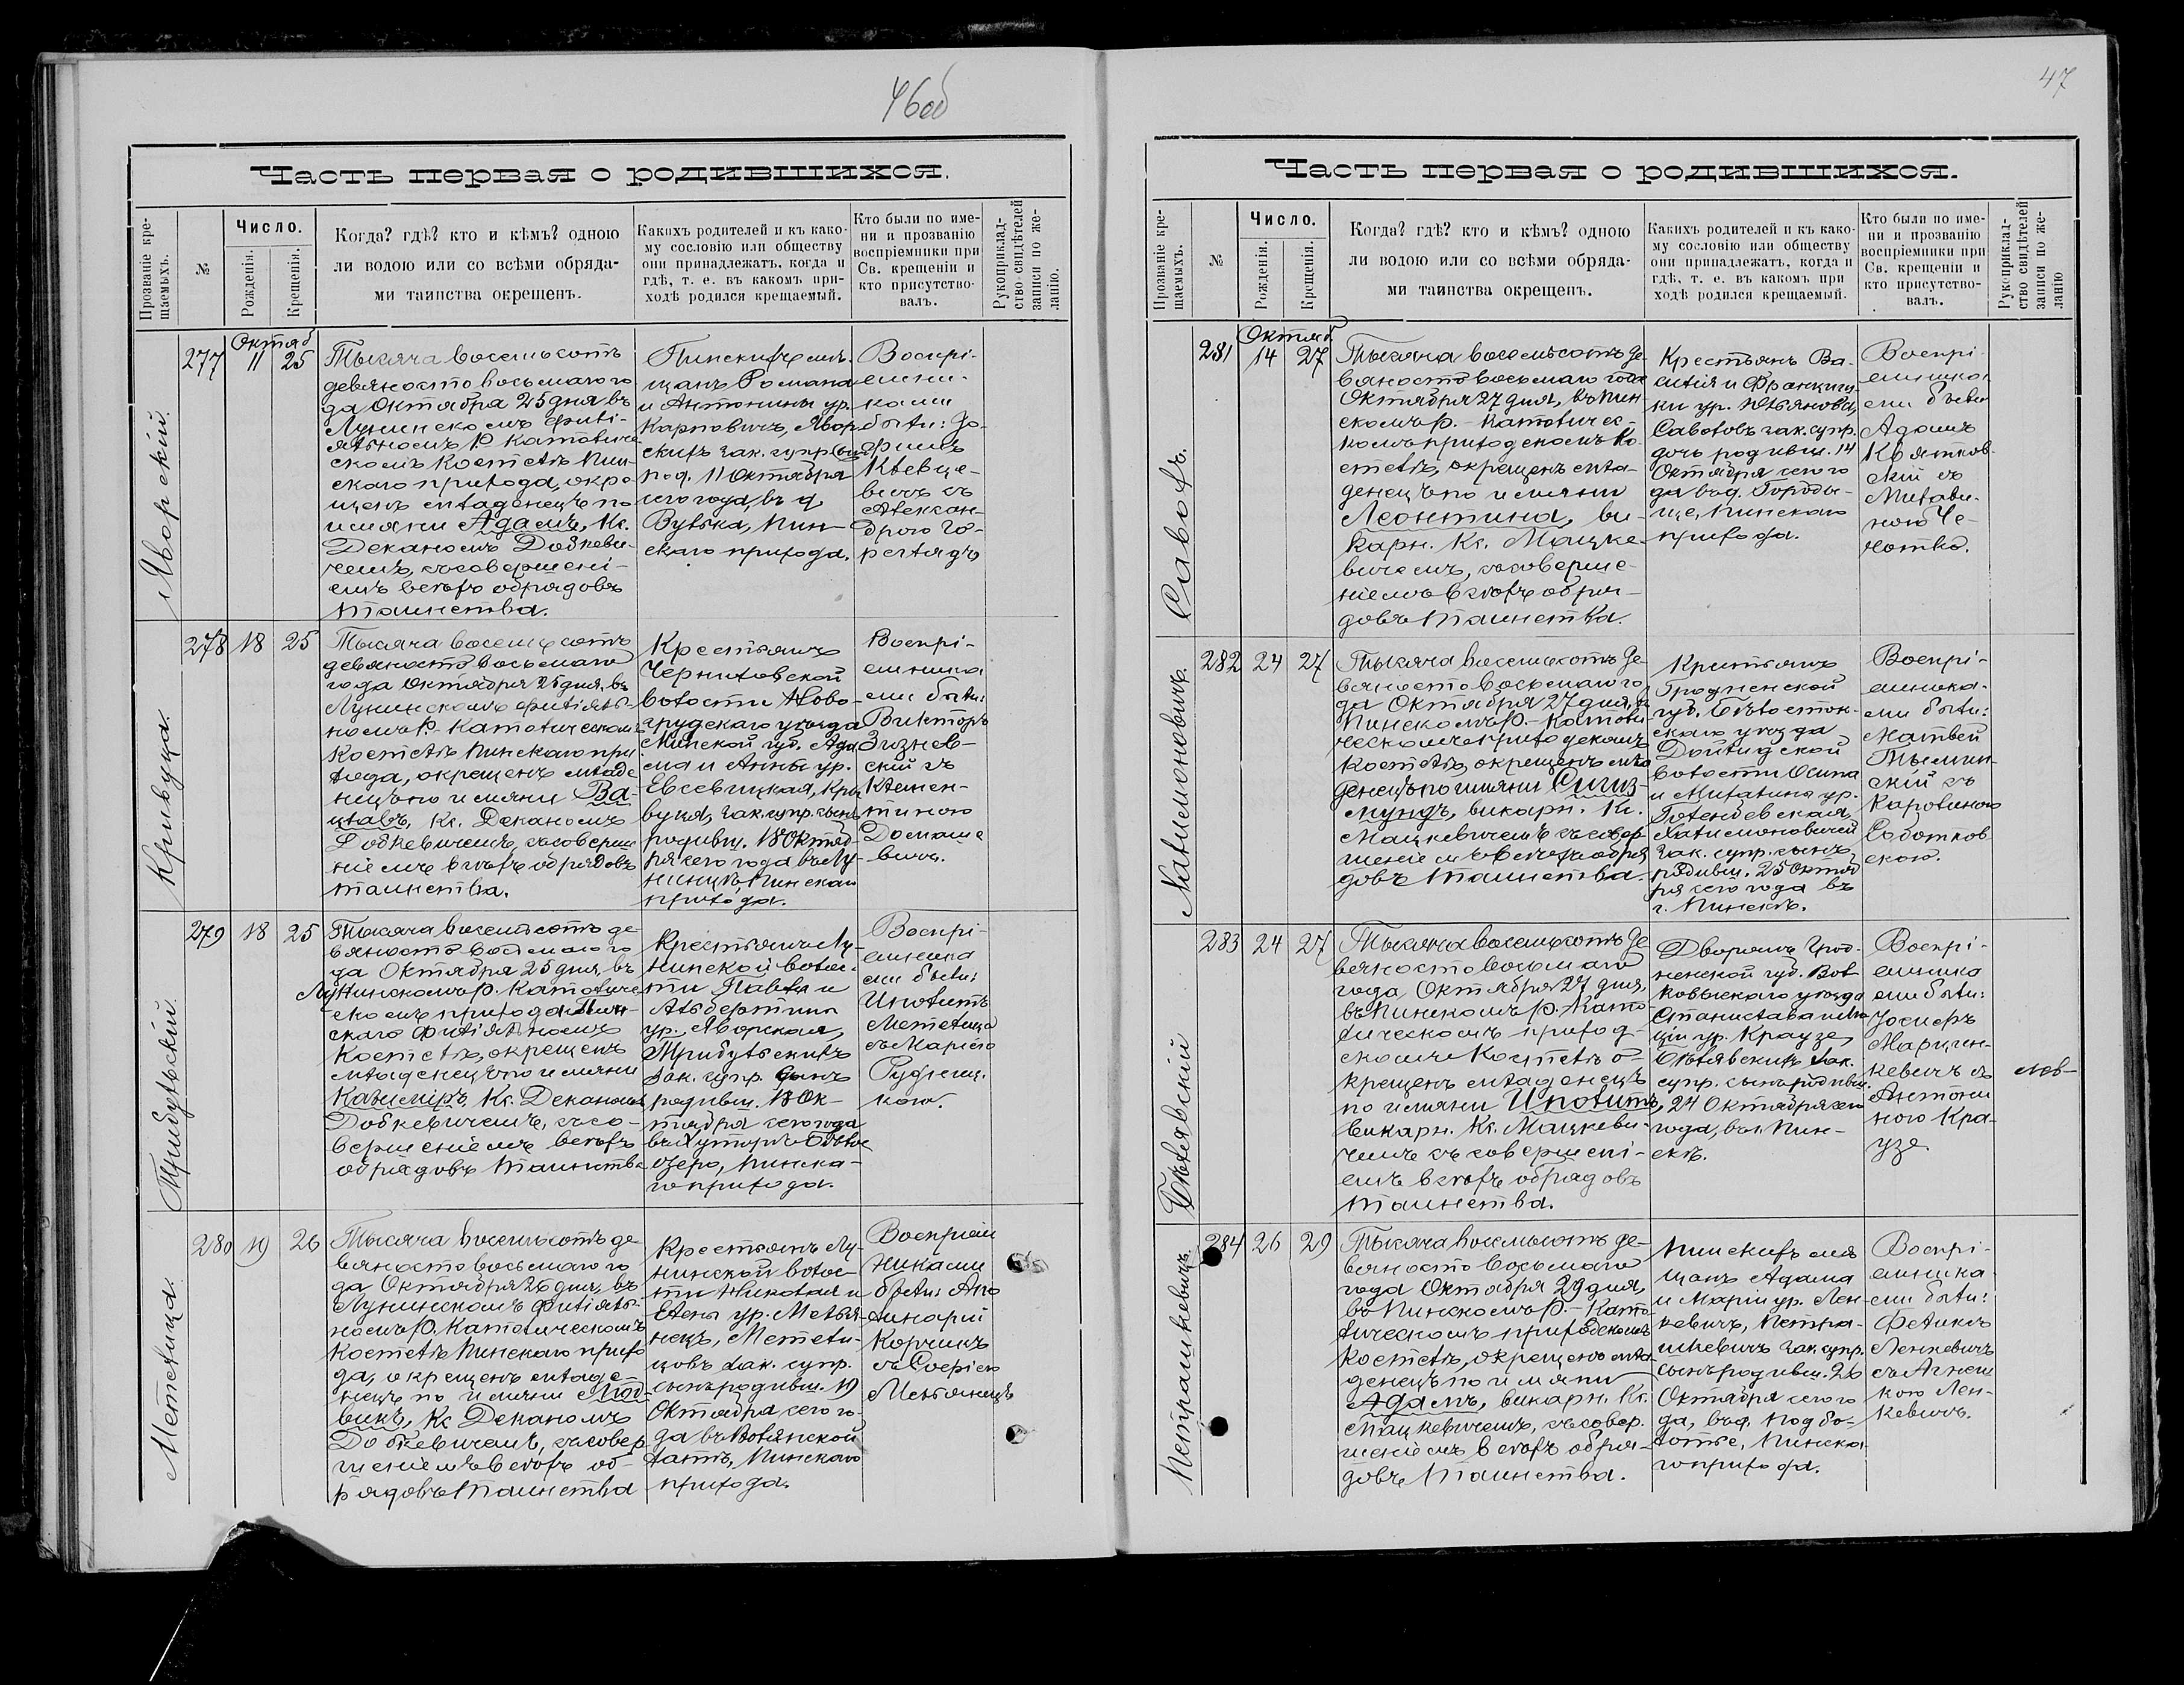 46об
Часть первая о родившихся.
Прозваніе кре-
щаемыхъ.
№
Число.
Рожденія.
Крещенія.
Когда? гдѣ? кто и кѣмъ? одною
ли водою или со всѣми обряда-
ми таинства окрещенъ.
Какихъ родителей и къ како-
му сословію или обществу
они принадлежатъ, когда и
гдѣ, т. е. въ какомъ при-
ходѣ родился крещаемый.
Кто были по име-
ни и прозванію
воспріемники при
Св. крещеніи и
кто присутство-
валъ.
Рукоприклад-
ство свидѣтелей
записи по же-
ланію.
Яворскій.
277
Октяб
11 25
Тысяча восемьсотъ
девяносто восьмаго го
да Октября 25 дня въ
Лунинскомъ филі-
яльномъ Р. Католиче
скомъ Костелѣ Пин-
скаго прихода, окре
щенъ младенецъ по
имени Адамъ, Кс.
Деканомъ Добкеви-
чемъ, съ совершені-
емъ всѣхъ обрядовъ
таинства.
Пинскихъ мѣ-
щанъ Романа
и Антонины ур.
Карповичъ, Явор
скихъ зак. супр. сынъ
род. 11 Октября
сего года, въ д.
Вулька, Пин-
скаго прихода.
Воспрі-
емни-
ками
были: Іо-
сифъ
съ
Алексан-
дрою Го-
Кривуца.
278 18 25
Тысяча восемьсотъ
девяносто восьмаго
года Октября 25 дня, въ
Лунинскомъ филіяль-
номъ Р. Католическомъ
Костелѣ Пинскаго при
хода, окрещенъ младе
нецъ по имени Ва-
цлавъ, Кс. Деканомъ
Добкевичемъ, съ соверше
ніемъ всѣхъ обрядовъ
таинства.
Крестьянъ
Черниховской
волости Ново-
грудскаго уѣзда
Минской губ. Ада
ма и Анны ур.
Евсевицкая, Кри
вуца, зак. супр. сынъ
родивш. 18 Октяб-
ря сего года въ Лу-
нинцѣ, Пинскаго
прихода.
Воспрі-
емника
ми были:
Викторъ
Згизнев-
скій съ
Клемен-
тиною
Домаше
вичъ.
Трибульскій.
279 18 25
Тысяча восемьсотъ де
вяносто восьмаго го
да Октября 25 дня, въ
Лунинскомъ Р. Католиче
скомъ прихода Пин-
скаго филіяльномъ
Костелѣ, окрещенъ
младенецъ по имени
Казиміръ, Кс. Деканомъ
Добкевичемъ, съ со-
вершеніемъ всѣхъ
обрядовъ таинства
Крестьянъ Лу-
нинской волос-
ти Павла и
Альбертины
ур. Яворская,
Трибульскихъ
зак. супр. сынъ
родивш. 18 Ок-
тября сего года
въ хуторѣ Бѣлое
озеро, Пинска-
го прихода.
Воспрі-
емника
ми были:
Ипполитъ
Метелица
съ Маріею
Рудниц-
кою.
Метелица.
280 19 26
Тысяча восемьсотъ де
вяносто восьмаго го
да Октября 26 дня, въ
Лунинскомъ филіяль-
номъ Р. Католическомъ
Костелѣ Пинскаго прихо
да, окрещенъ младе-
нецъ по имени Люд-
викъ, Кс. Деканомъ
Добкевичемъ, съ совер
шеніемъ всѣхъ об-
рядовъ таинства
Крестьянъ Лу-
нинской волос-
ти Николая и
Елены ур. Мелья-
нецъ, Метели-
цовъ зак. супр.
сынъ родивш. 19
Октября сего го-
да въ Волянской
хатѣ, Пинскаго
прихода.
Воспріем
никами
были: Апо
линарій
Корчикъ
съ Софіею
Мельянецъ
47
Часть первая о родившихся.
Прозваніе кре-
щаемыхъ.
№
Число.
Рожденія.
Крещенія.
Когда? гдѣ? кто и кѣмъ? одною
ли водою или со всѣми обряда-
ми таинства окрещенъ.
Какихъ родителей и къ како-
му сословію или обществу
они принадлежатъ, когда и
гдѣ, т. е. въ какомъ при
ходѣ родился крещаемый.
Кто были по име-
ни и прозванію
воспріемники при
Св. крещеніи и
кто присутство-
валъ.
Рукоприклад-
ство свидѣтелей
записи по же-
ланію
Савохъ.
281
Октяб
14 27
Тысяча восемьсотъ де-
вяносто восьмаго года
Октября 27 дня, въ Пин
скомъ Р.-Католичес-
комъ приходскомъ Ко-
стелѣ, окрещенъ мла-
денецъ по имени
Леонтина, ви-
карн. Кс. Мацке-
вичемъ, съ соверше-
ніемъ всѣхъ обря-
довъ таинства.
Крестьянъ Ва-
силія и Францишки
ур. Юльянова,
Савоховъ зак. супр.
дочь родивш. 14
Октября сего го
да въ д. Городи-
ще, Пинскаго
прихода.
Воспрі-
емника
ми были
Адамъ
Квятков-
скій съ
Михали-
ною Че-
хотко.
Халимоновичъ.
282 24 27
Тысяча восемьсотъ де-
вяносто восьмаго го
да Октября 27 дня, въ
Пинскомъ Р.-Католи-
ческомъ приходскомъ
Костелѣ, окрещенъ мла
денецъ по имени Сигиз-
мундъ, викарн. Кс.
Мацкевичемъ съ совер-
шеніемъ всѣхъ обря
довъ таинства.
Крестьянъ
Гродненской
губ. Бѣлосток-
скаго уѣзда
Дойлидской
волости Осипа
и Михалины ур.
Халимоновичей
зак. супр. сынъ
родивш. 25 Октяб
ря сего года въ
г. Пинскѣ.
Воспрі-
емника-
ми были:
Матвей
Тымин-
скій съ
Каролиною
Соботков
скою.
Бѣлявскій
283 24 27
Тысяча восемьсотъ де
вяносто восьмаго
года Октября 27 дня,
въ Пинскомъ Р. Като
лическомъ приход-
скомъ Костелѣ о-
крещенъ младенецъ
по имени Ипполитъ,
викарн. Кс. Мацкеви-
чемъ съ совершені-
емъ всѣхъ обрядовъ
таинства.
Дворянъ Грод-
ненской губ. Вол
ковыскаго уѣзда
Станислава и Лю
ціи ур. Краузе,
Бѣлявскихъ зак.
супр. сынъ родивш.
24 Октября сего
года, въ г. Пин-
скѣ.
Воспрі-
емника
ми были:
Іосифъ
Марцин-
кевичъ съ
Антони
ною Кра-
узе.
Петрашкевичъ
284 26 29
Тысяча восемьсотъ де-
вяносто восьмаго
года Октября 29 дня,
въ Пинскомъ Р.-Като-
лическомъ приходскомъ
Костелѣ, окрещенъ мла-
денецъ по имени
Адамъ, викарн. Кс.
Мацкевичемъ, съ совер-
шеніемъ всѣхъ обря-
довъ таинства.
Пинскихъ мѣ
щанъ Адама
и Маріи ур. Лен-
кевичъ, Петра-
шкевичъ зак. супр.
сынъ родивш. 26
Октября сего го
да, въ ф. Подбо-
лотье, Пинска
го прихода.
Воспрі-
емника-
ми были:
Феликсъ
Ленкевичъ
съ Агнеш
кою Лен-
кевичъ.